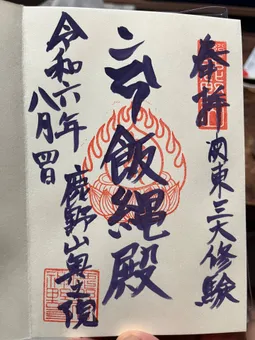 奉拝
関東三大修験
飯縄殿
令和六年
八月四日
鹿野山奥之院